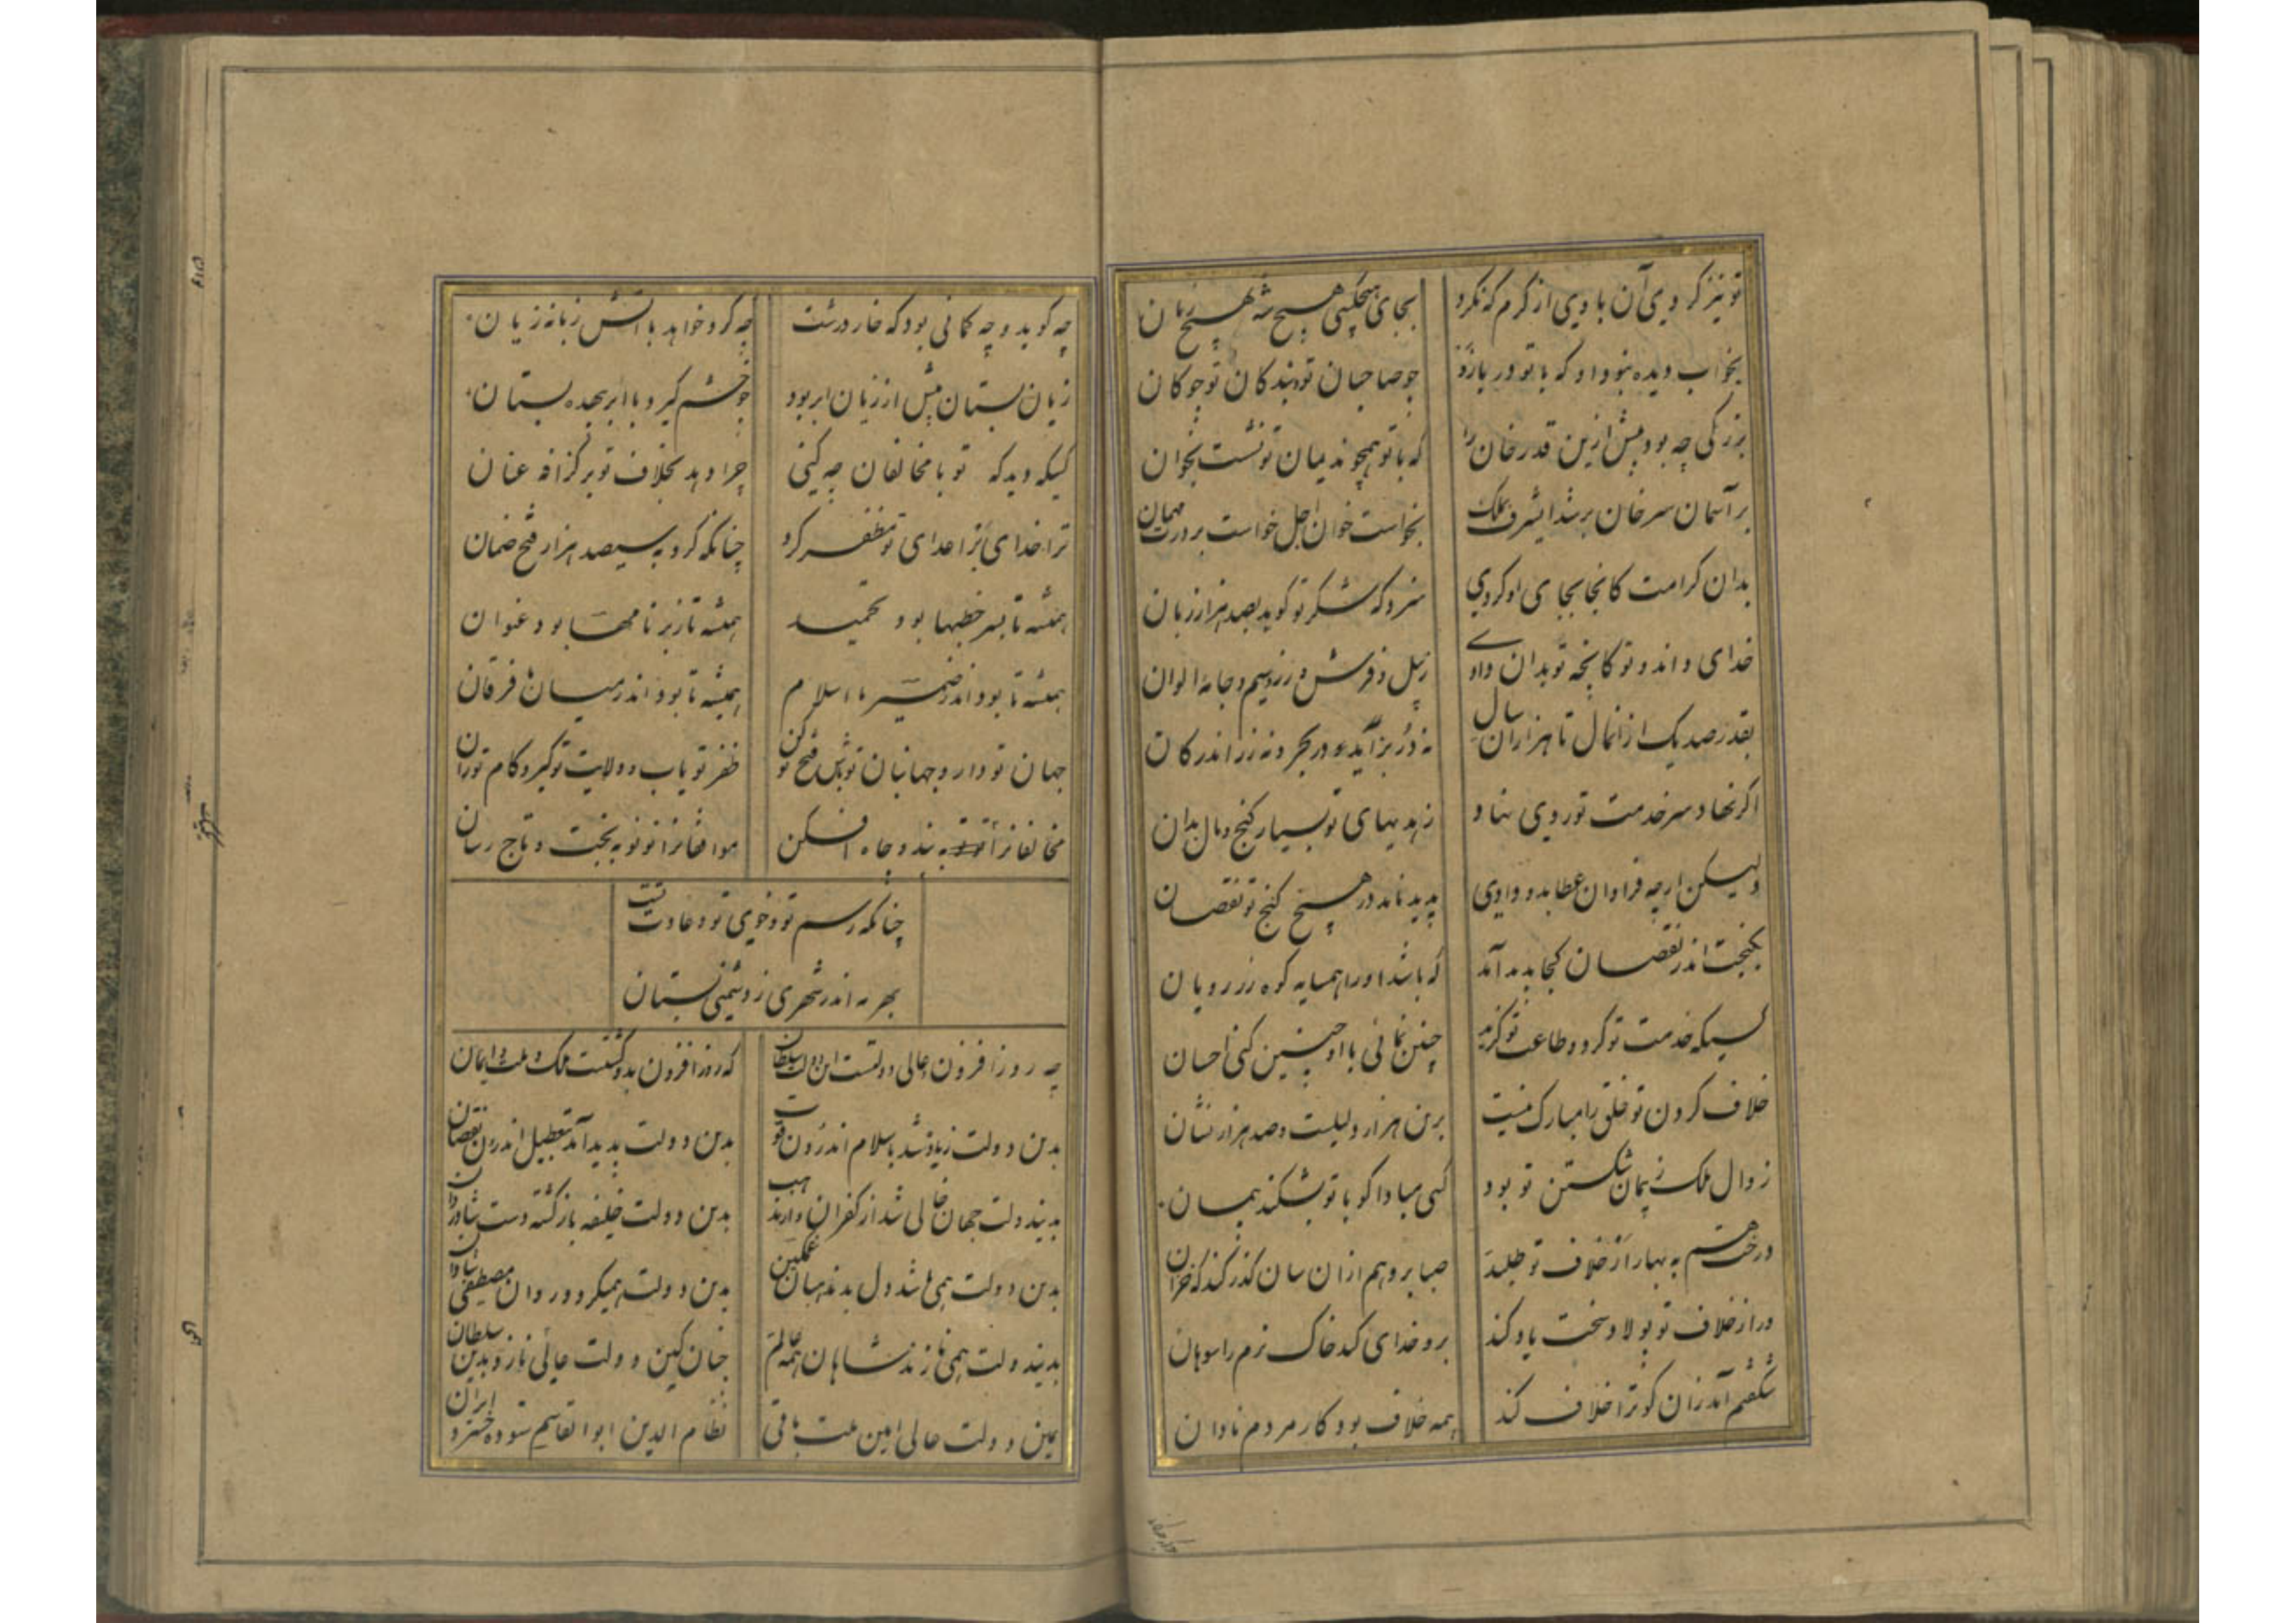 تو نیز کردی آن با وی از کرم که نکرد بجای هیچکسی هیچ شه بهیچ زمان
بخواب دیده نبود او که با تو در یازد چو صاحبان تو و بندکان تو چوکان
بزرکی چه بود پیش ازین قدرخان را که با تو همچو ندیمان تو نشست بخوان
بر آسمان سر خان بر شد این شرف بملک نخواست خوان اجل خواست بر درت مهمان
بدان کرامت کانجا بجای او کردی سزد که شکر تو کوید بصد هزار زبان
خدای داند و تو کانچه تو بدان دادی ز پیل و فرش و زر و سیم و جامه الوان
بقدر صد یک از انمال تا هزاران سال نه در بر آید در بحر و نه زر اندر کان
اکر نهاد سر خدمت تو روی نهاد ز هدیهای تو بسیار کنج و مال بدان
ولیکن ارچه فراوان عطا بدو دادی پدید ناید در هیچ کنج تو نقصان
بکنجت اندر نقصان کجا پدید آید که باشد او را همسایه کوه زر رویان
کسیکه خدمت تو کرد و طاعت تو کزید چنین نمائی با او چنین کنی احسان
خلاف کردن تو خلق را مبارک نیست برین هزار دلیلست و صد هزار نشان
زوال ملک ز پیمان شکستن تو بود کسی مبادا کو با تو بشکند پیمان
درخت هم به بهار از خلاف تو طلبد صبا برو هم ازان سان کذر کند که خزان
ور از خلاف تو پولاد سخت یاد کند برو خدای کند خاک نرم را سوهان
شکفتم آید زان کو ترا خلاف کند همه خلاف بود کار مردم نادان
چه کوید و چه کمانی بود که خار درشت چه کرد خواهد با آتش زبانه زیان
زیان بستان بیش از زیان ابر بود چو خشم کیرد با ابر بیهده بستان
کسیکه دید که تو با مخالفان چه کنی چرا دهد بخلاف تو بر کزافه عنان
ترا خدای بر اعدای تو مظفر کرد چنانکه کرد به سیصد هزار فتح ضمان
همیشه تا بسر خطبها بود تحمید همیشه تا ز بر نامها بود عنوان
همیشه تا بود اندر ضمیرها اسلام همیشه تا بود اندر میان ما فرقان
جهان تو دار و جهانبان تو باش و فتح تو کن ظفر تو یاب و ولایت تو کیر و کام تو ران
مخالفانرا به بند و چاه افکن موافقانرا تو تو بتخت و تاج رسان
چنانکه رسم تو و خوی تو و عادت تست
بهر مه اندر شهری ز دشمنی بستان
چه روز افزون عالی دولتست این دولت سلطان که روز افزون بدو کشتست ملک و ملت و ایمان
بدین دولت زیادت شد باسلام اندرون قوت بدین دولت پدید آمد بتعطیل اندرون نقصان
بدیندولت جهان خالی شد از کفران بدین دولت خلیفه باز کسترده ست شادروان
بدین دولت همی شد دل بدمذهبان غمکین بدین دولت همیکردد روان مصطفی شادان
بدیندولت همی نازند شاهان همه عالم چنان کین دولت عالی نازد بدین سلطان
یمین دولت عالی امین ملت باقی نظام الدین ابوالقاسم ستوده خسرو ایران